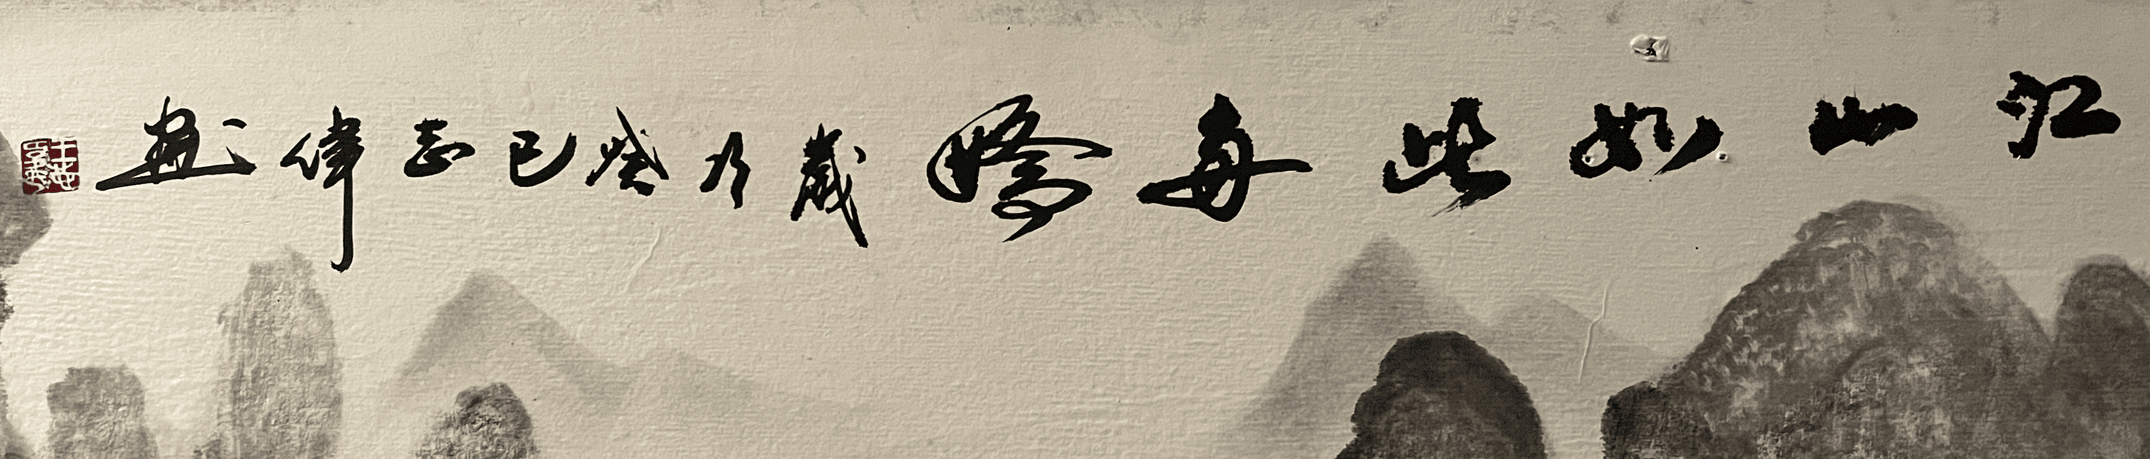 江山如此每嬌歲次癸巳志偉畫